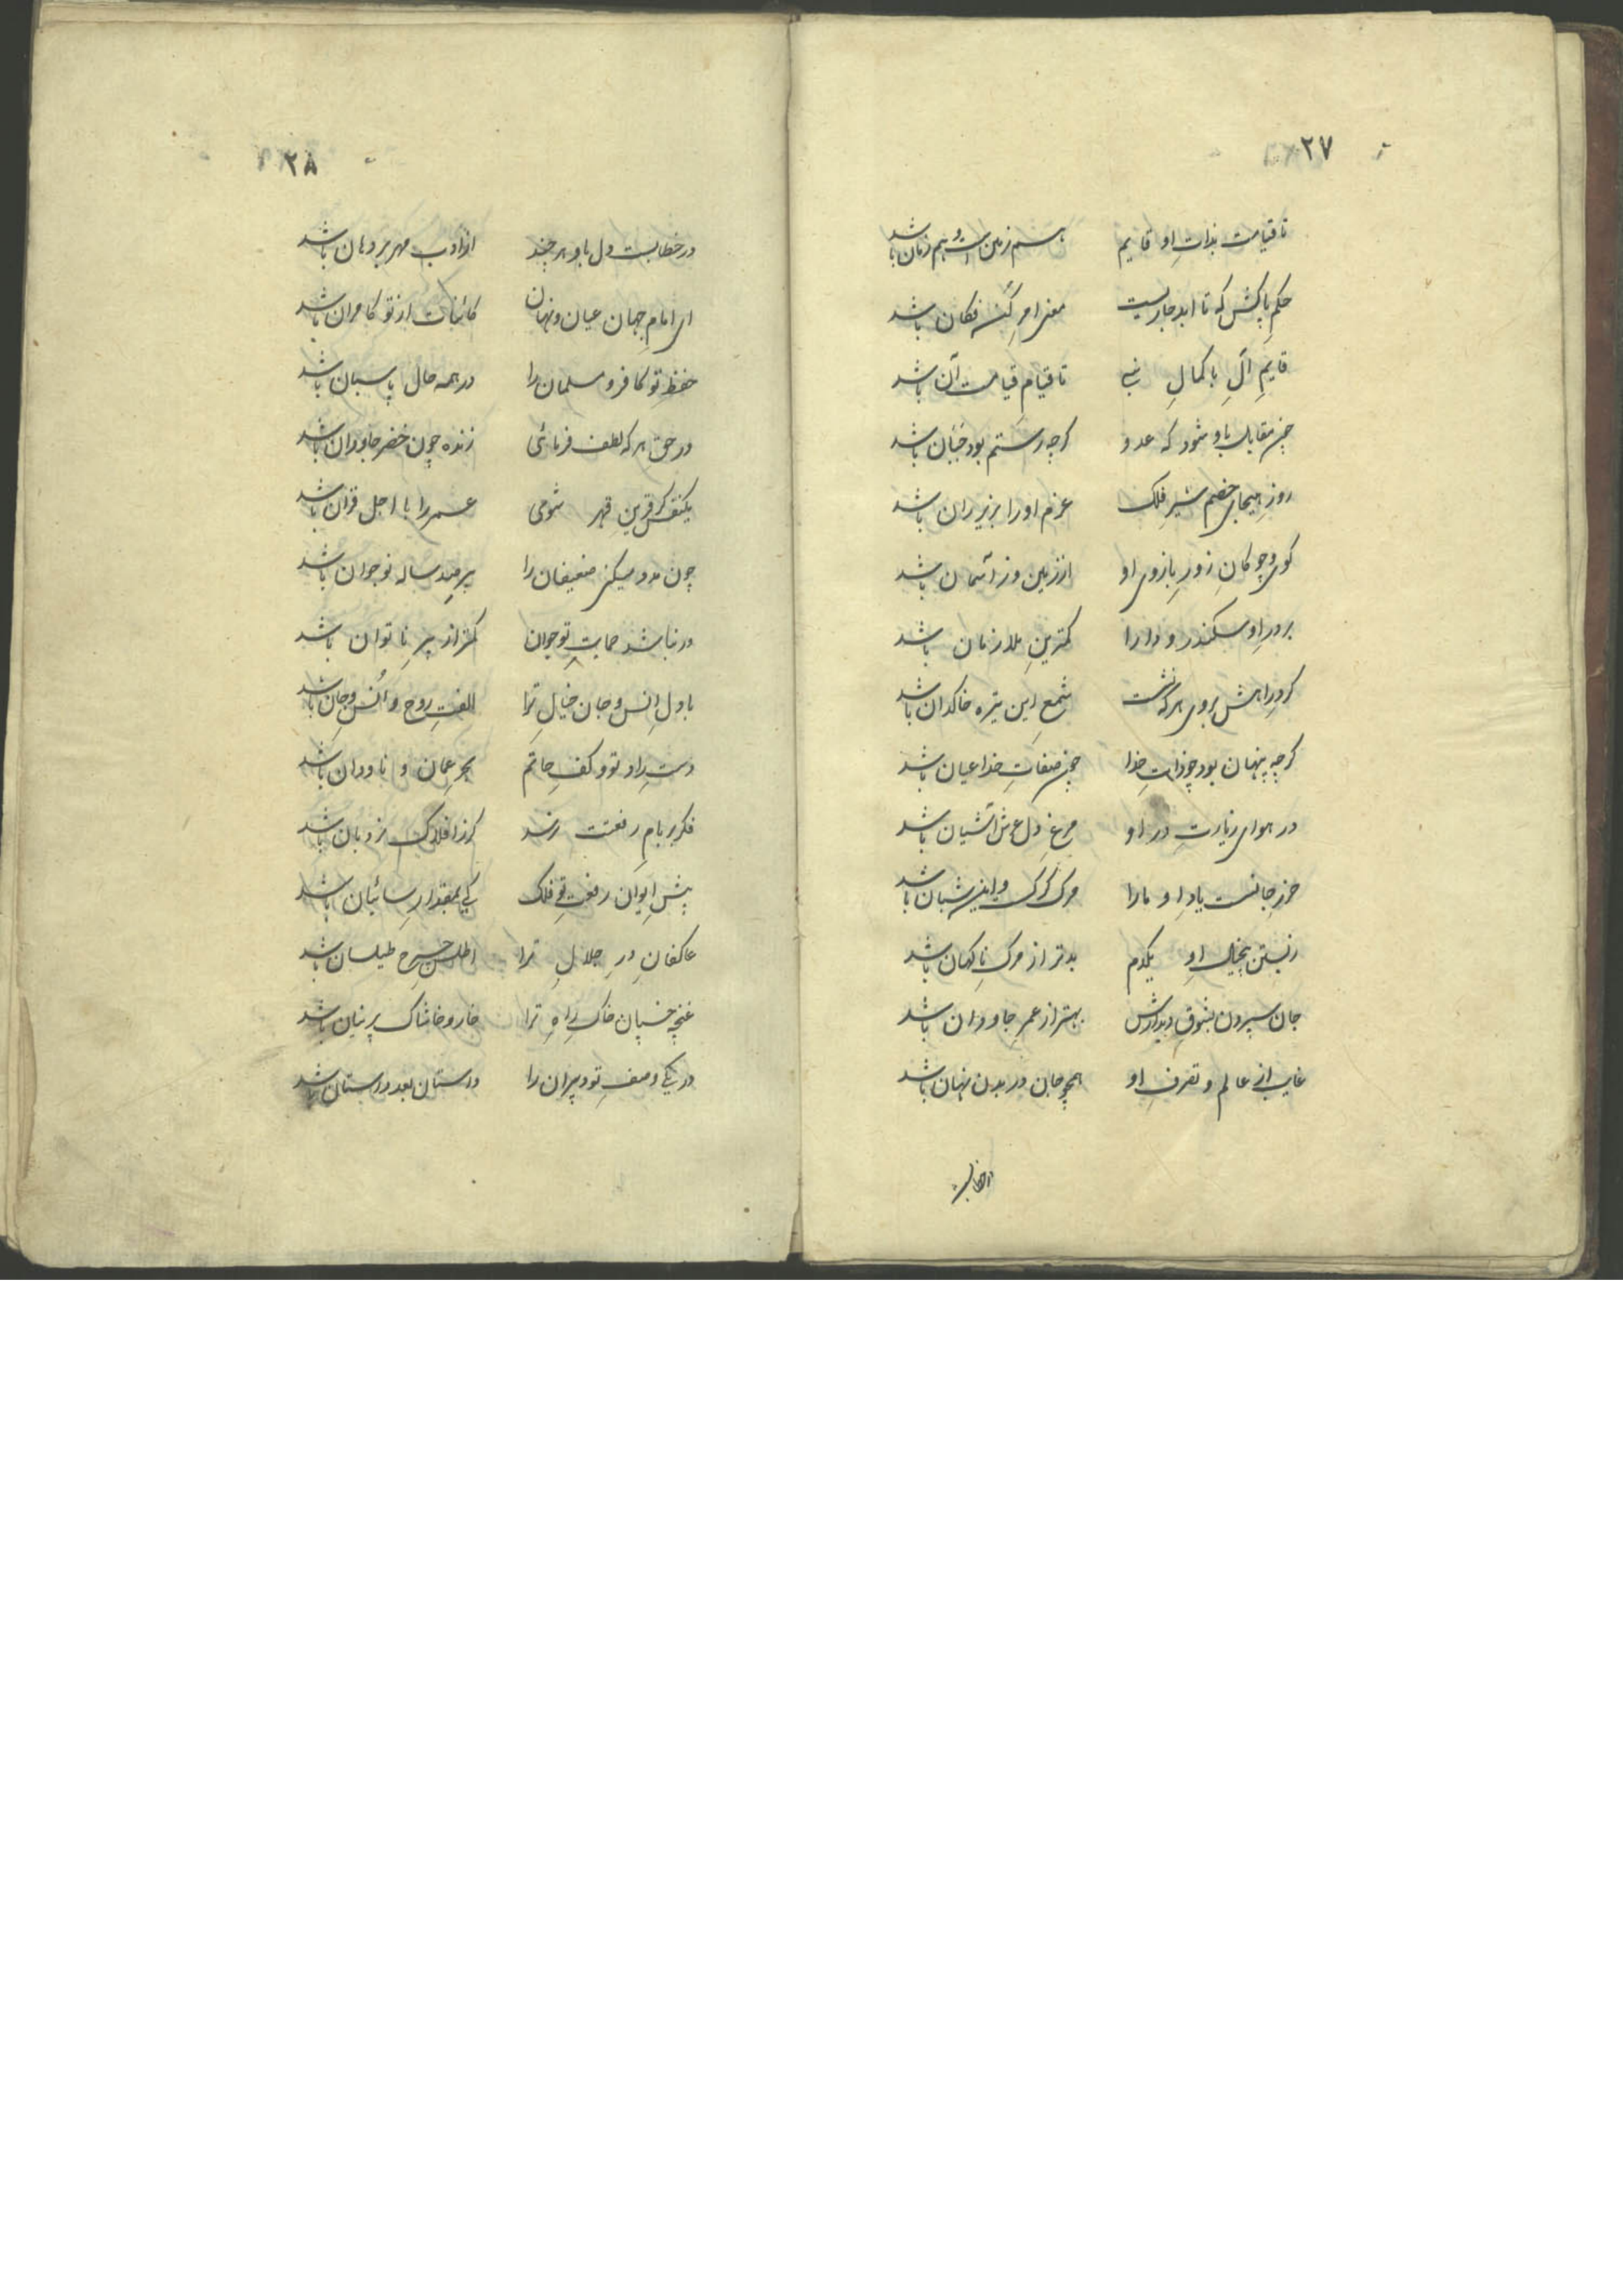 ۲۷
تا قیامت بذاتِ او قایم هم زمین است و هم زمان باشد
حکمِ پاکش که تا ابد جاریست معنی امرِ کُن فکان باشد
قایمِ آلِ با کمالِ نبی تا قیامِ قیامت آن باشد
چون مقابل باو شود که عدو گرچه رستم بود جَبان باشد
روزِ هیجای خصم شیرِ فلک عزم او را بزیر ران باشد
گوی و چوکانِ زورِ بازوی او از زمین وز آسمان باشد
بر درِ او سکندر و دارا کمترینِ ملازمان باشد
گردِ راهش بروی هر که نشست شمعِ این تیره خاکدان باشد
گرچه پنهان بود چو ذاتِ خدا چون صفاتِ خدا عیان باشد
در هوای زیارتِ درِ او مرغِ دل عرش آشیان باشد
حرزِ جانست یادِ او ما را مرک کرک و این شبان باشد
زیستن بیخیالِ او یکدم بدتر از مرک ناکهان باشد
جان سپردن بشوقِ دیدارش بهتر از عمرِ جاودان باشد
غایب از عالم و تصرفِ او همچو جان در بدن نهان باشد
در خطابست
۲۸
در خطابست دل باو هر چند از ادب مهر بر دهان باشد
ای امامِ جهان عیان و نهان کائنات از تو کامران باشد
حفظِ تو کافر و مسلمان را در همه حال پاسبان باشد
در حق هر که لطف فرمائی زنده چون خضر جاودان باشد
یکنفس گر قرینِ قهر شوی عمر را با اجل قران باشد
چون مدد میکنی ضعیفان را پیرِ صد ساله نوجوان باشد
ور نباشد حمایتِ تو جوان کمتر از پیرِ ناتوان باشد
با دلِ انس و جان خیالِ ترا الفتِ روح و اُنسِ جان باشد
دستِ رادِ تو و کفِ حاتم بحرِ عمان و ناودان باشد
فکر بر بامِ رفعتت نرسد گرز افلاک نردبان باشد
پیشِ ایوان رفعتِ تو فلک کی بمقدارِ سائبان باشد
عاکفانِ درِ جلالِ ترا اطلس چرخ طیلسان باشد
غنچه خسپان خاکِ راهِ ترا خار و خاشاک پرنیان باشد
در یکی وصفِ تو دبیران را دستان بعد دستان باشد